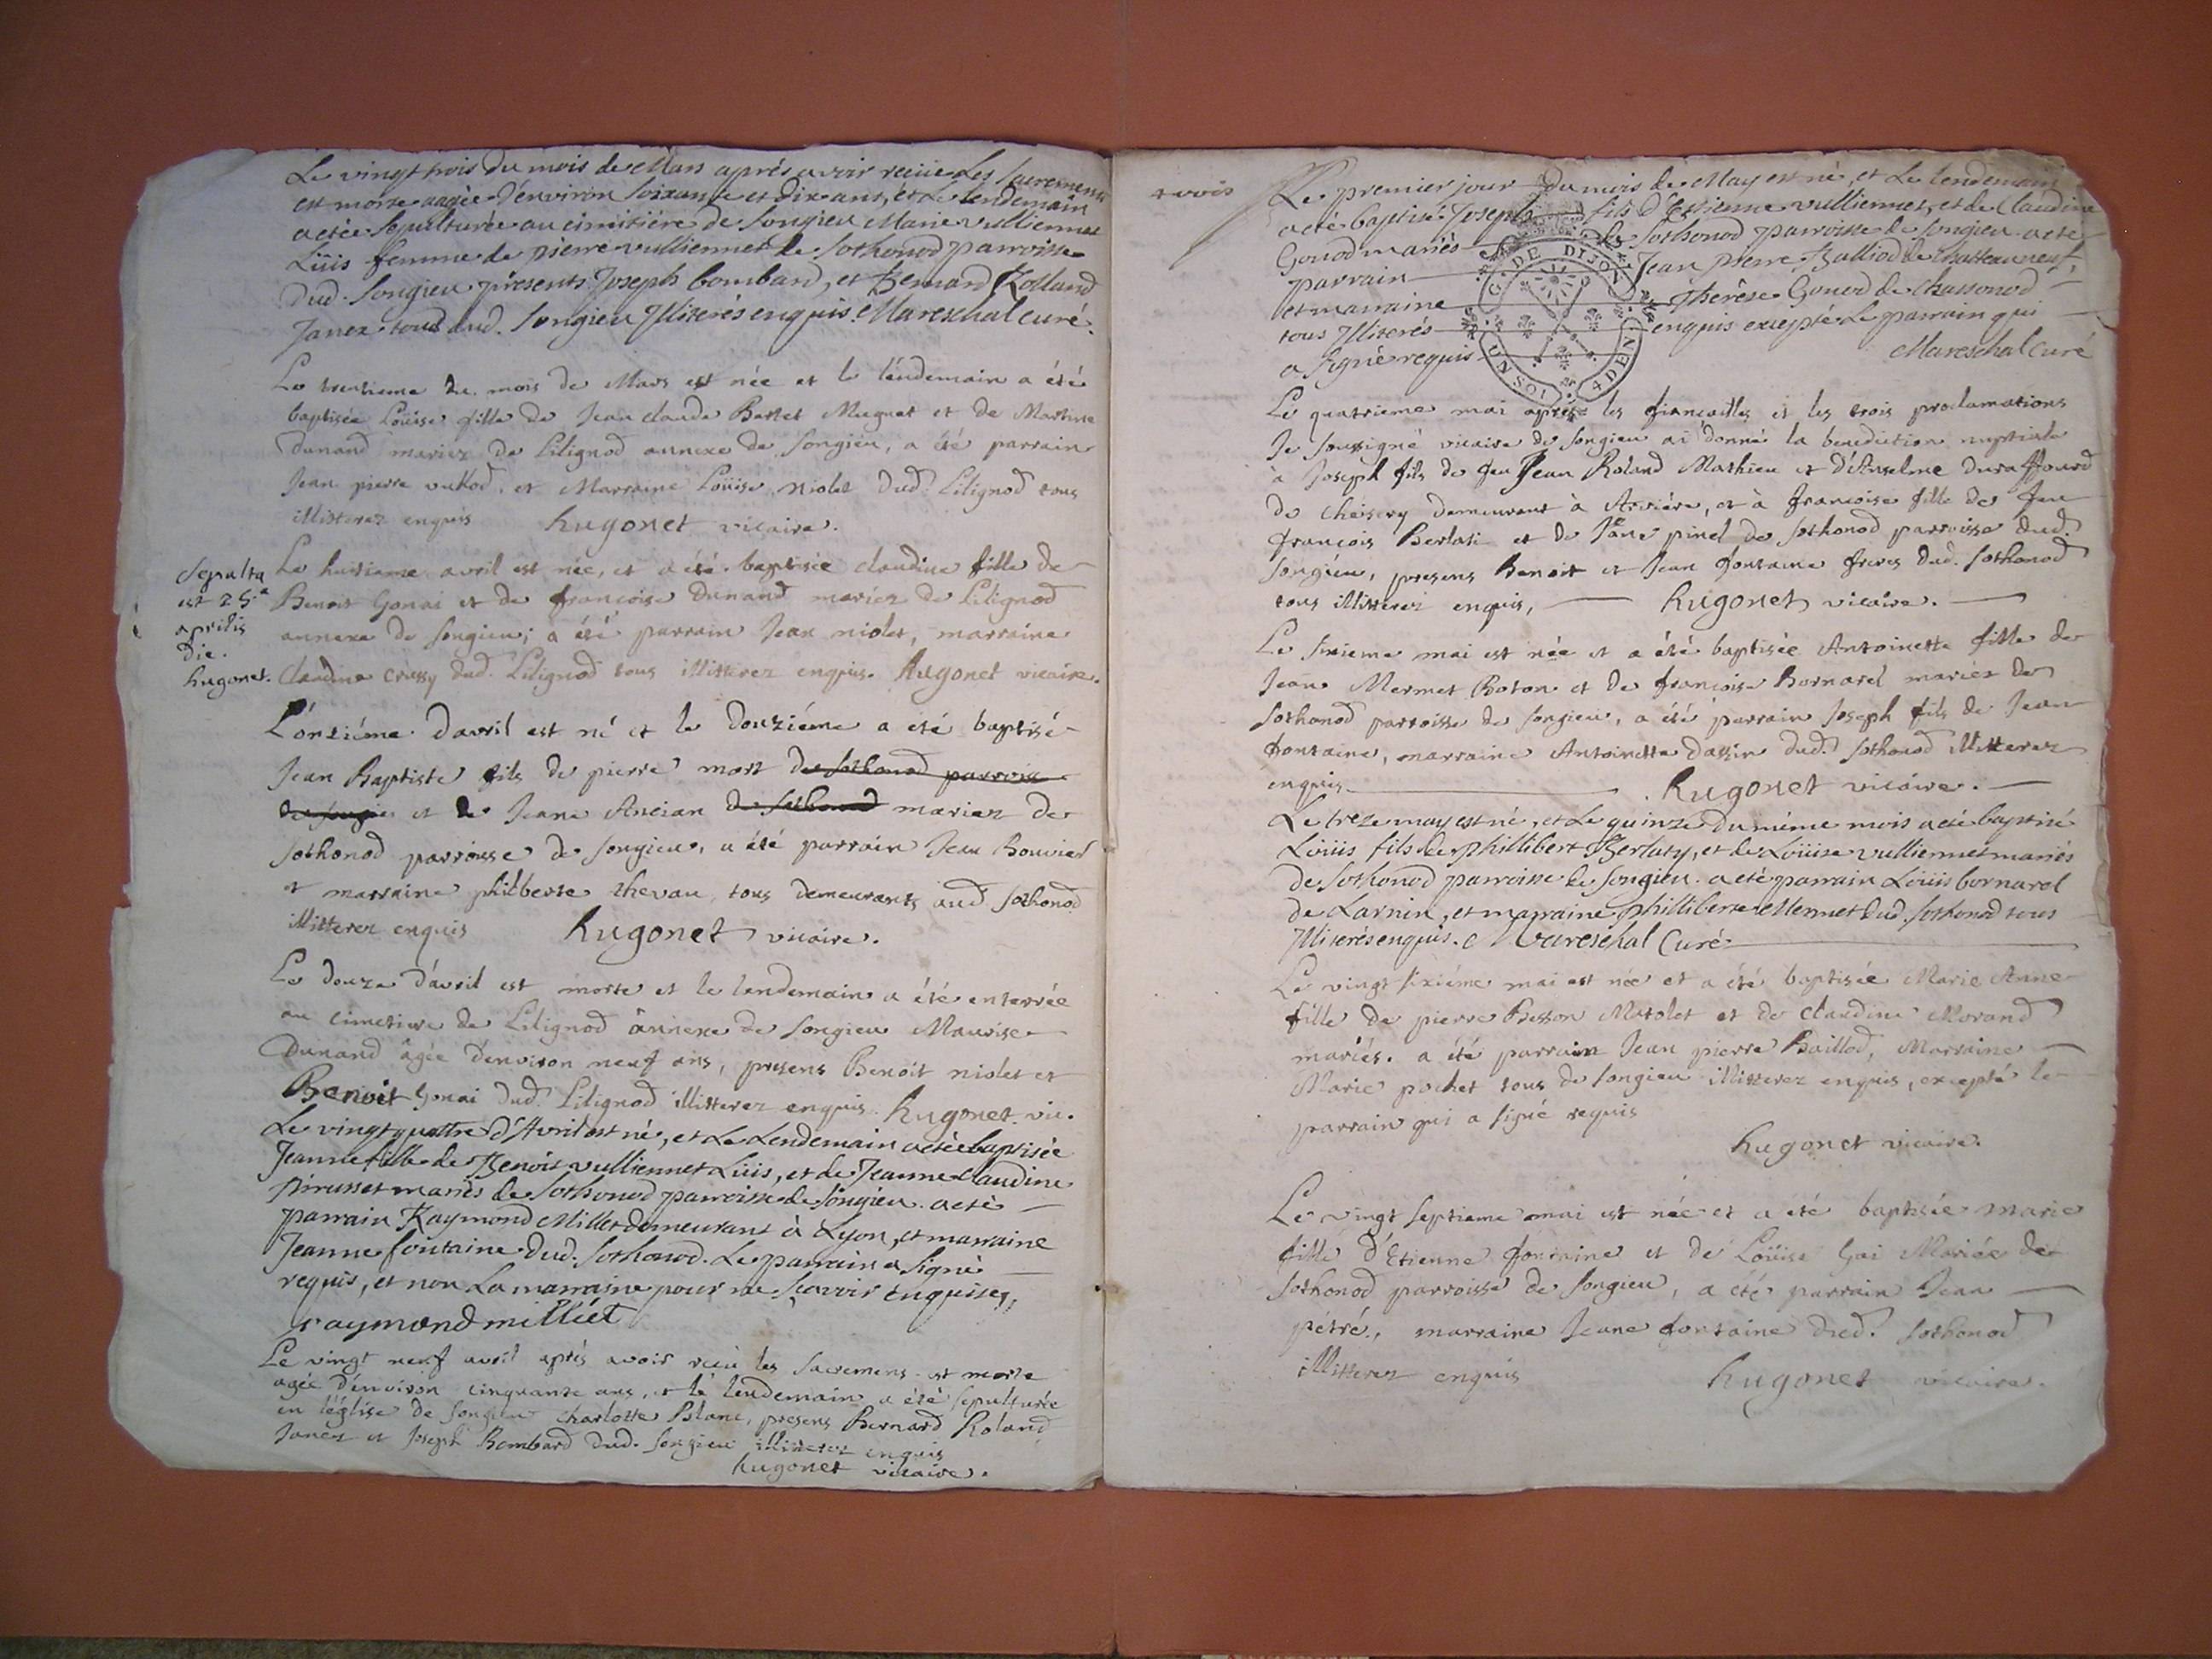 Le vingt trois du mois de Mars aprés avoir reciie Les Sacremens
est morte aagée d'environ soixante et dix ans, et Le lendemain
a etée sepulturée au cimitiére de Songieu Marie vulliennet
Lüis femme de pierre vulliermet de Sothonod parroisse
dud. Songieu présents Joseph bombard, et Bernard Rolland
Janez tous dud. Songieu Illiterés enquis. Mareschal curé.
Le trentieme du mois de Mars est née et le léndemain a été
baptisée Loüise fille de Jean claude Bertet Mugnet et de Martine
Dunand mariez de Lilignod annexe de Songieu, a été parrain
Jean pierre vullod, et Marraine Loüise niolet dud. Lilignod tous
illitterez enquis hugonet vicaire.
Sepulta
est 25.a
aprilis
die.
hugonet.
Le huitieme avril est née, et a été baptisée claudine fille de
Benoit Gonai et de francoise Dunand mariez de Lilignod
annexe de Songieu; a été parrain Jean niolet, marraine
Claudine crussy dud. Lilignod tous illitterez enquis. hugonet vicaire.
L'ónziéme d'avril est né et le douziéme a eté baptisé
Jean Baptiste fils de pierre mort de sothonod parroisse
de songieu et de Jeane Ancian de sothonod mariez de
Sothonod parroisse de songieu, a été parrain Jean Bouvier
et marraine philberte thevau, tous demeurants aud Sothonod
illitterez enquis hugonet vicaire.
Le douze d'avril est morte et le lendemain a été enterrée
au cimetiere de Lilignod ânnexe de Songieu Maurise
Dunand âgée d'environ neuf ans, presens Benoit niolet et
Benoit Gonai dud. Lilignod illitterez enquis. hugonet. vic.
Le vingt quattre d'Avril est né, et Le Lendemain a eté baptisée
Jeanne fille de Benoit vulliermet Lüis, et de Jeanne claudine
pirusset mariés de Sothonod parroisse de Songieu. a eté
parrain Raymond Millet demeurant à Lyon, et marraine
Jeanne fontaine dud. Sothonod. Le parrain a Signé
requis, et non La marraine pour ne Sçavoir enquise,
raymond milliet
Le vingt neuf avril aprés avoir reçu les sacremens est morte
agée d'environ cinquante ans, et le lendemain a été sepulturée
en l'église de Songieu charlotte Blanc, presens Bernard Roland
Janez et Joseph Bombard dud. Songieu illitterez enquis
hugonet vicaire.
trois
Le premier jour du mois de May est né, et Le lendemain
a eté baptisé Joseph fils d'Estienne vulliermet, et de Claudine
Gonod mariés de Sothonod parroisse de Songieu. a eté
parrain Jean pierre Balliod de Chasteauneuf,
et marraine Therêse Gonod de Chassonod
tous Illiterés enquis excepté Le parrain qui
a Signé requis Mareschal Curé
G. DE DIJON
4 DEN
Le quatrieme mai aprés les fiançailles et les trois proclamations
Je soussigné vicaire de songieu ai donné la benediction nuptiale
à Joseph fils de feu Jean Roland Mathieu et d'Anselme Duraffourd
de cheisery demeurant à Arviére, et à françoise fille de feu
françois Berlati et de Jane pinel de sothonod parroisse dud.
Songieu, presens Benoit et Jean fontaine freres dud. Sothonod
tous illitterez enquis, hugonet vicaire.
Le sixieme mai est née et a été baptisée Antoinette fille de
Jean Mermet Boton et de françoise Bornarel mariez de
Sothonod parroisse de songieu, a été parrain Joseph fils de Jean
fontaine, marraine Antoinette dassin dud. Sothonod illitterez
enquis hugonet vicaire.
Le treze may est né, et Le quinze du même mois a eté baptisé
Loüis fils de phillibert Berlaty, et de Loüise vulliermet mariés
de Sothonod parroisse de Songieu. a eté parrain Loüis bornarel
de Larnin, et marraine phillibertte Mermet dud. Sothonod tous
Illiterés enquis. Mareschal Curé
Le vingt sixiéme mai est née et a été baptisée Marie Anne
fille de pierre Besson Matolet et de claudine Morand
mariés. a été parrain Jean pierre Baillod, Marraine
Marie pochet tous de songieu illitterez enquis, excepté le
parrain qui a signé requis
hugonet vicaire.
Le vingt septieme mai est née et a été baptisée marie
fille d'Etienne fontaine et de Loüise Gai Mariez de
Sothonod parroisse de songieu, a eté parrain Jean
pétré, marraine Jeane fontaine dud. Sothonod
illitterez enquis hugonet vicaire.